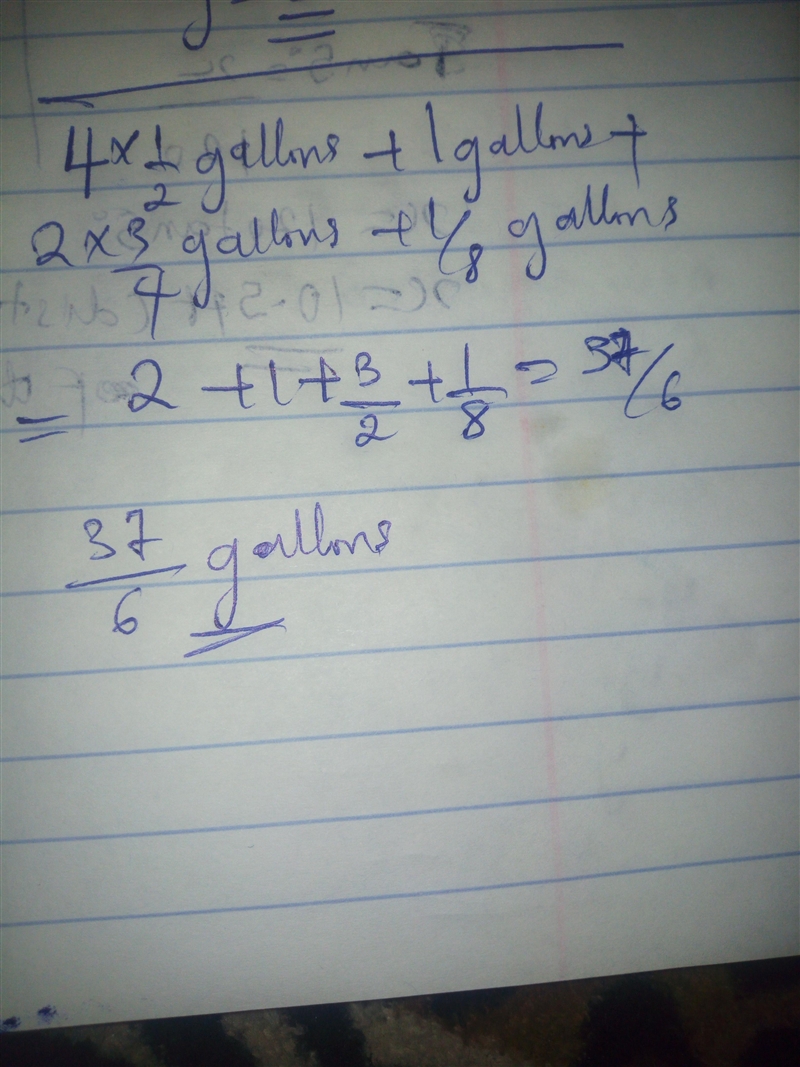 4 × 1/2 gallons + 1 gallons +
2 × 3/4 gallons + 1/8 gallons
= 2 + 1 + 3/2 + 1/8 = 37/6
37/6 gallons